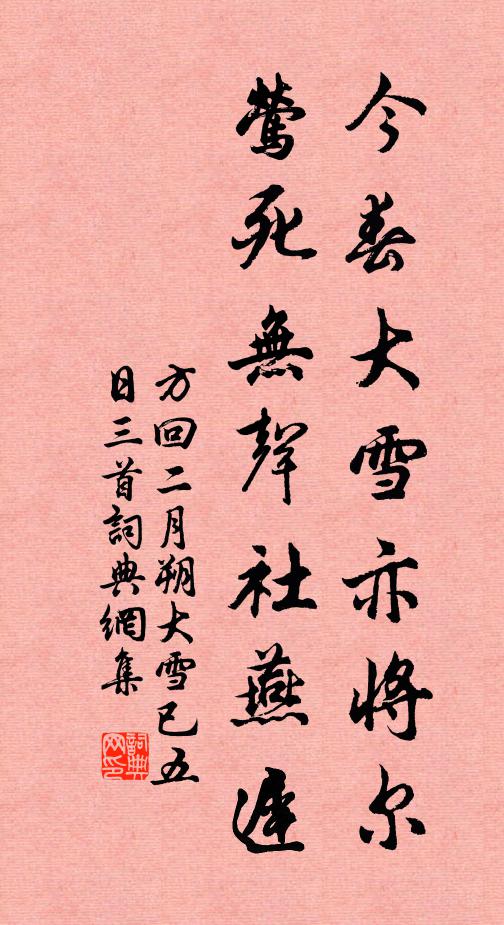 今春大雪亦將尔
鶯死無聲社燕遲
方回二月朔大雪已五
日三首詞典網集
詞典
网印